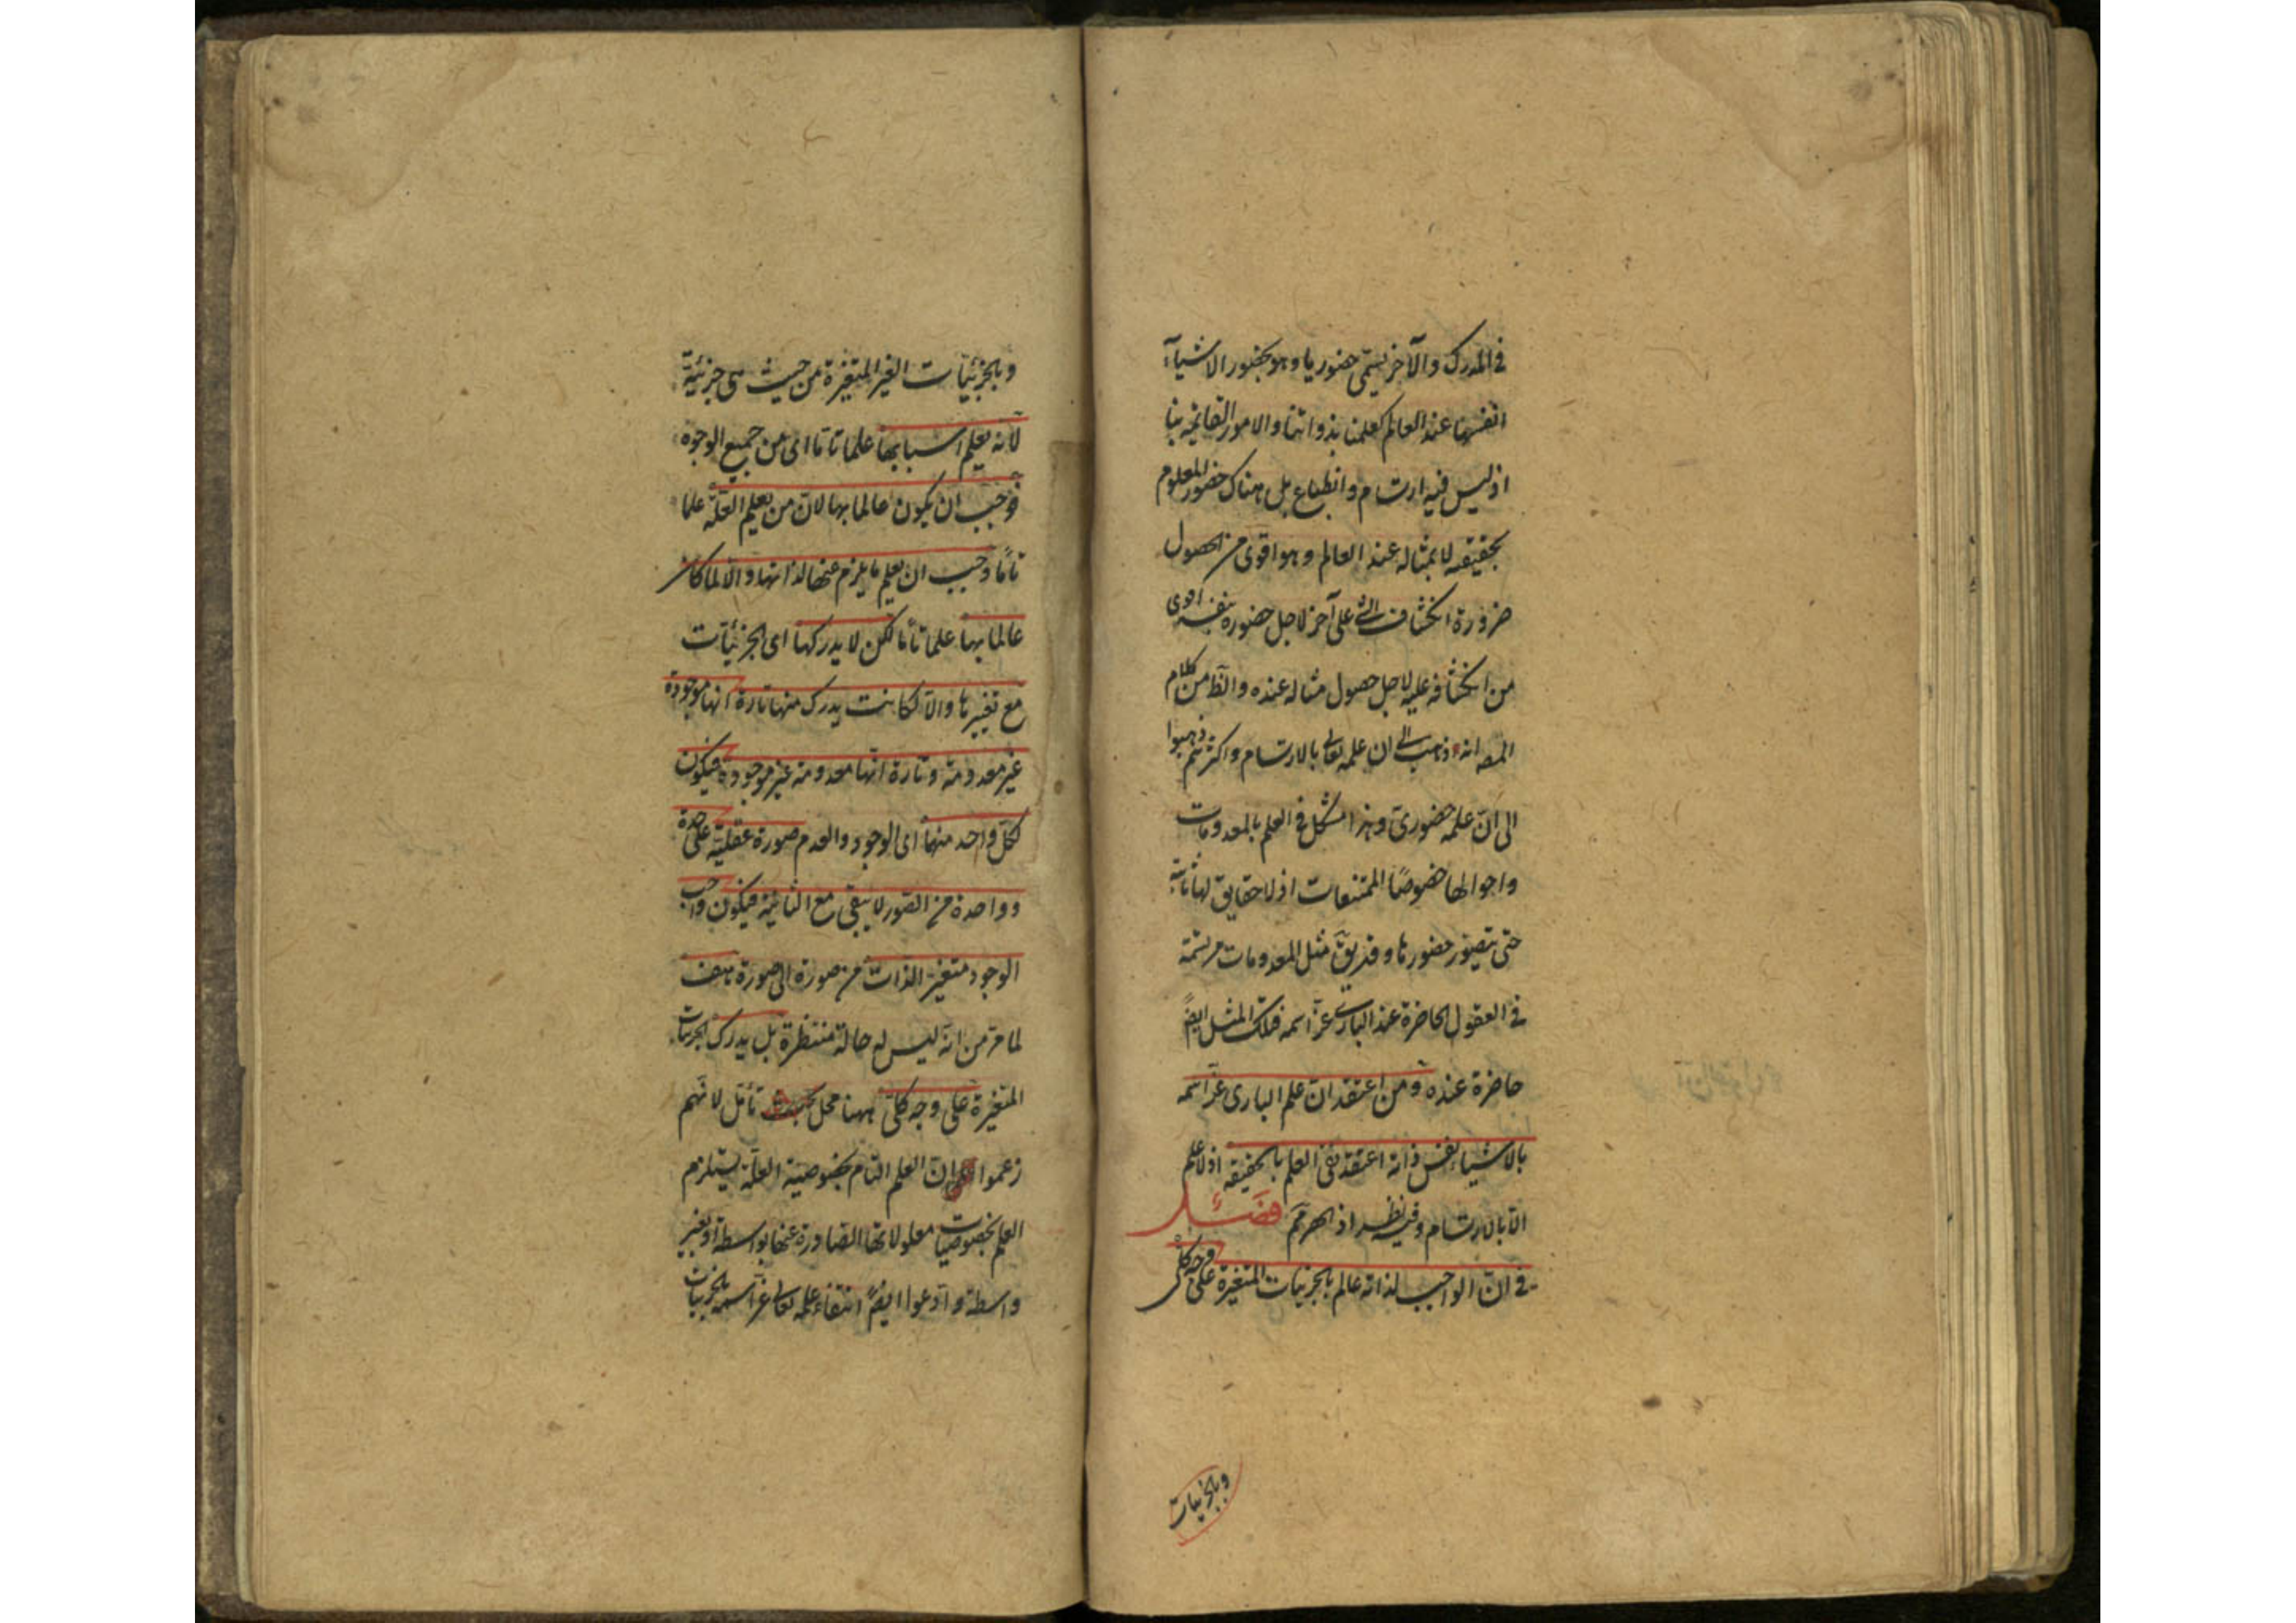 في المدرك والآخر يسمى حضوريا وهو بحضور الاشياء
انفسها عند العالم كعلمنا بذواتنا والامور القائمة بنا
اذ ليس فيه ارتسام وانطباع بل هناك حضور المعلوم
بحقيقته لا بمثاله عند العالم وهو اقوى من الحصول
ضرورة انكشاف الشئ على آخر لاجل حضوره بنفسه اقوى
من انكشافه عليه لاجل حصول مثاله عنده والظ من كلام
المصه انه ذهب الى ان علمه تعالى بالارتسام واكثرهم ذهبوا
الى ان علمه حضوري وهذا مشكل في العلم بالمعدومات
واحوالها خصوصًا الممتنعات اذ لا حقايق لها ثابتة
حتى يتصور حضورها وقد يق مثل المعدومات مرتسمة
في العقول الحاضرة عند الباري عز اسمه فتلك المثل ايضً
حاضرة عنده ومن اعتقد ان علم الباري عز اسمه
بالاشياء نفس ذاته اعتقد نفي العلم بالحقيقه اذ لا علم
الا بالارتسام وفيه نظر اذ الحصر مم فصل
في ان الواجب لذاته عالم بالجزئيات المتغيرة على وجه كلي
وبالجزئيات
وبالجزئيات الغير المتغيرة من حيث هي جزئية
لانه يعلم اسبابها علما تاما اى من جميع الوجوه
فوجب ان يكون عالما بها لان من يعلم العلة علما
تامًا وجب ان يعلم ما يلزم عنها لذاتها والا لما كان
عالما بها علما تاما لكن لا يدركها اى الجزئيات
مع تغيرها والا لكانت يدرك منها تارة انها موجودة
غير معدومة وتارة انها معدومة غير موجودة فيكون
لكل واحد منهما اى الوجود والعدم صورة عقلية على حدة
وواحدة من الصور لا يبقى مع الثانية فيكون واجب
الوجود متغير الذات من صورة الى صورة هف
لما مر من انه ليس له حالة منتظرة بل يدرك الجزئيات
المتغيرة على وجه كلي ههنا محل بحث تأمل لانهم
زعموا ان العلم التام بخصوصية العلة يستلزم
العلم بخصوصيات معلولاتها الصادرة عنها بواسطة او بغير
واسطة وادعوا ايضً انتفاء علمه تعالى عز اسمه بالجزئيات